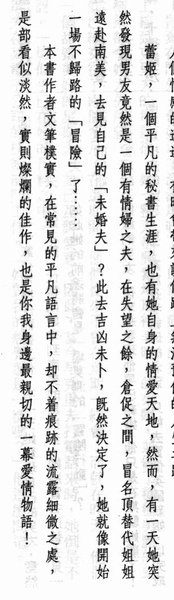 蕾姬，一個平凡的秘書生涯，也有她自身的情愛天地，然而，有一天她突
然發現男友竟然是一個有情婦之夫，在失望之餘，倉促之間，冒名頂替代姐姐
遠赴南美，去見自己的「未婚夫」？此去吉凶未卜，既然決定了，她就像開始
一場不歸路的「冒險」了……
本書作者文筆樸實，在常見的平凡語言中，却不着痕跡的流露細微之處，
是部看似淡然，實則燦爛的佳作，也是你我身邊最親切的一幕愛情物語！